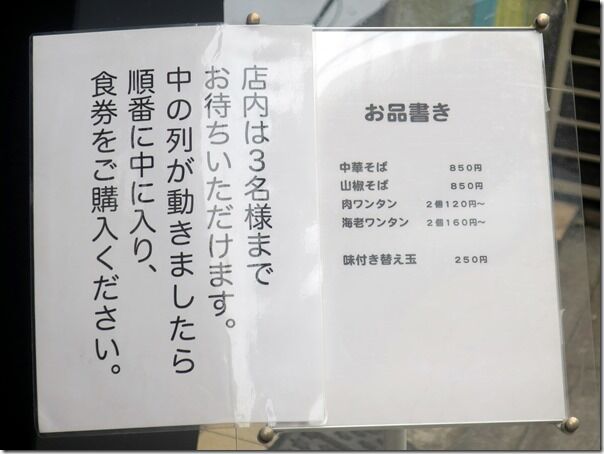 店内は3名様まで
お待ちいただけます。
中の列が動きましたら
順番に中に入り、
食券をご購入ください。
お品書き
中華そば 850円
山椒そば 850円
肉ワンタン 2個120円〜
海老ワンタン 2個160円〜
味付き替え玉 250円